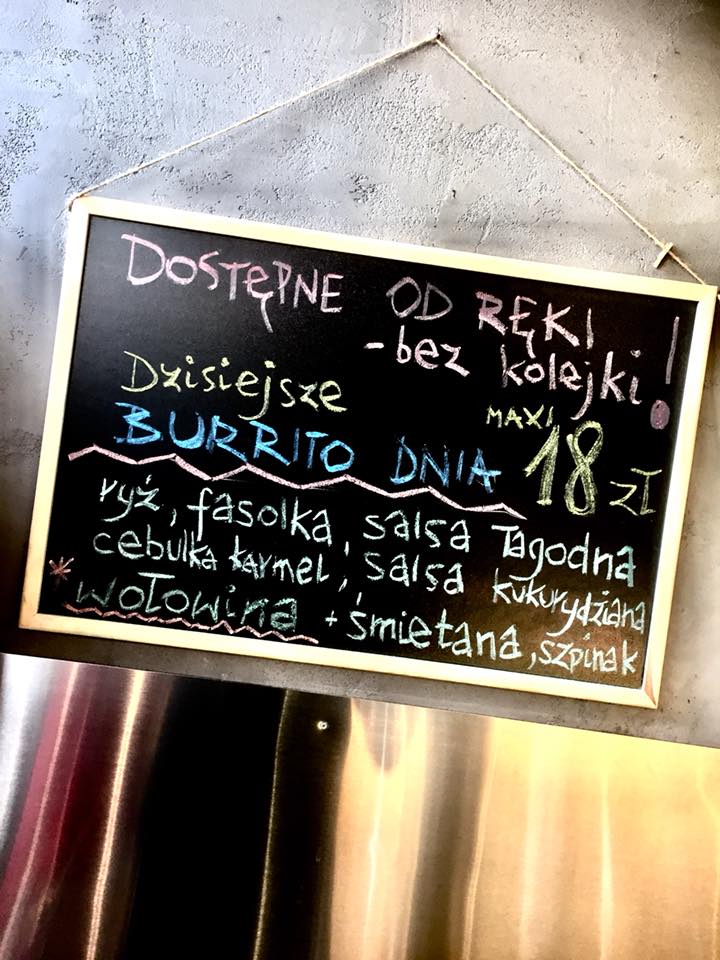 DOSTĘPNE OD RĘKI
-bez kolejki!
Dzisiejsze
BURRITO DNIA MAXI 18 zł
ryż, fasolka, salsa łagodna
cebulka karmel, salsa kukurydziana
* wołowina + śmietana, szpinak